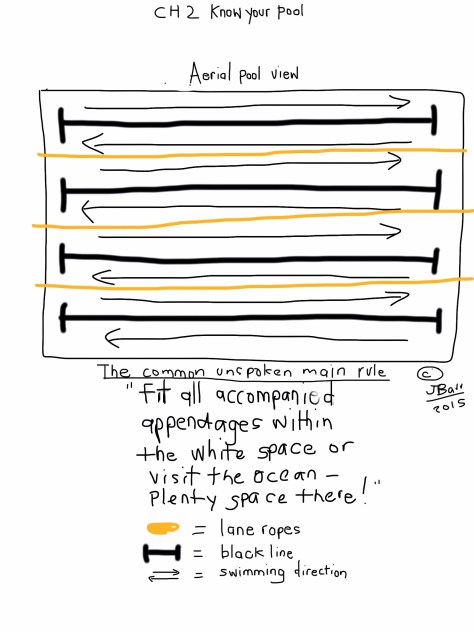 CH 2 Know your pool
Aerial pool view
The common unspoken main rule
"Fit all accompanied
appendages within
the white space or
visit the ocean –
Plenty space there!"
= lane ropes
= black line
= swimming direction
©
JBall
2015